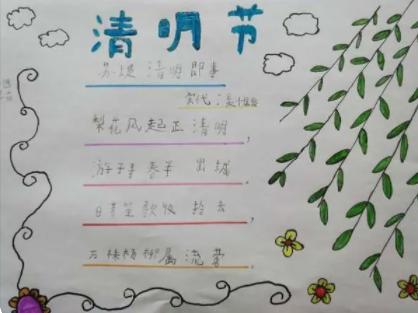 清明节
苏堤清明即事
宋代：吴惟信
梨花风起正清明，
游子寻春半出城。
日暮笙歌收拾去，
万株杨柳属流莺。